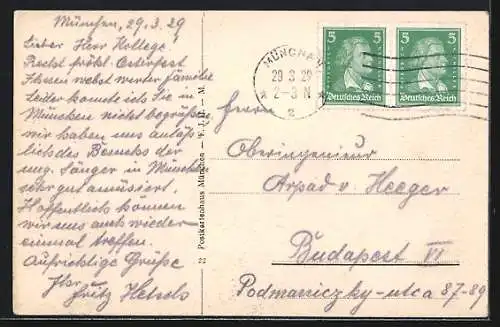 München, 29.3.29
Lieber Herr Kollege!
Recht frohl. Osterfest
Ihnen nebst werter Familie
Leider konnte ich Sie in
München nicht begrüßen,
wir haben uns anläß-
lich des Besuchs der
ung. Sänger in München
sehr gut amüsiert.
Hoffentlich können
wir uns auch wieder
einmal treffen.
Aufrichtige Grüße
Ihr
Fritz
22 Postkartenhaus München
5 5
Deutsches Reich Deutsches Reich
MÜNCHEN
29 3 29
★ 2-3 N ★
2
Herrn
Oberingenieur
Arpad v. Heeger
Budapest VI
Podmaniczky-utca 87-89